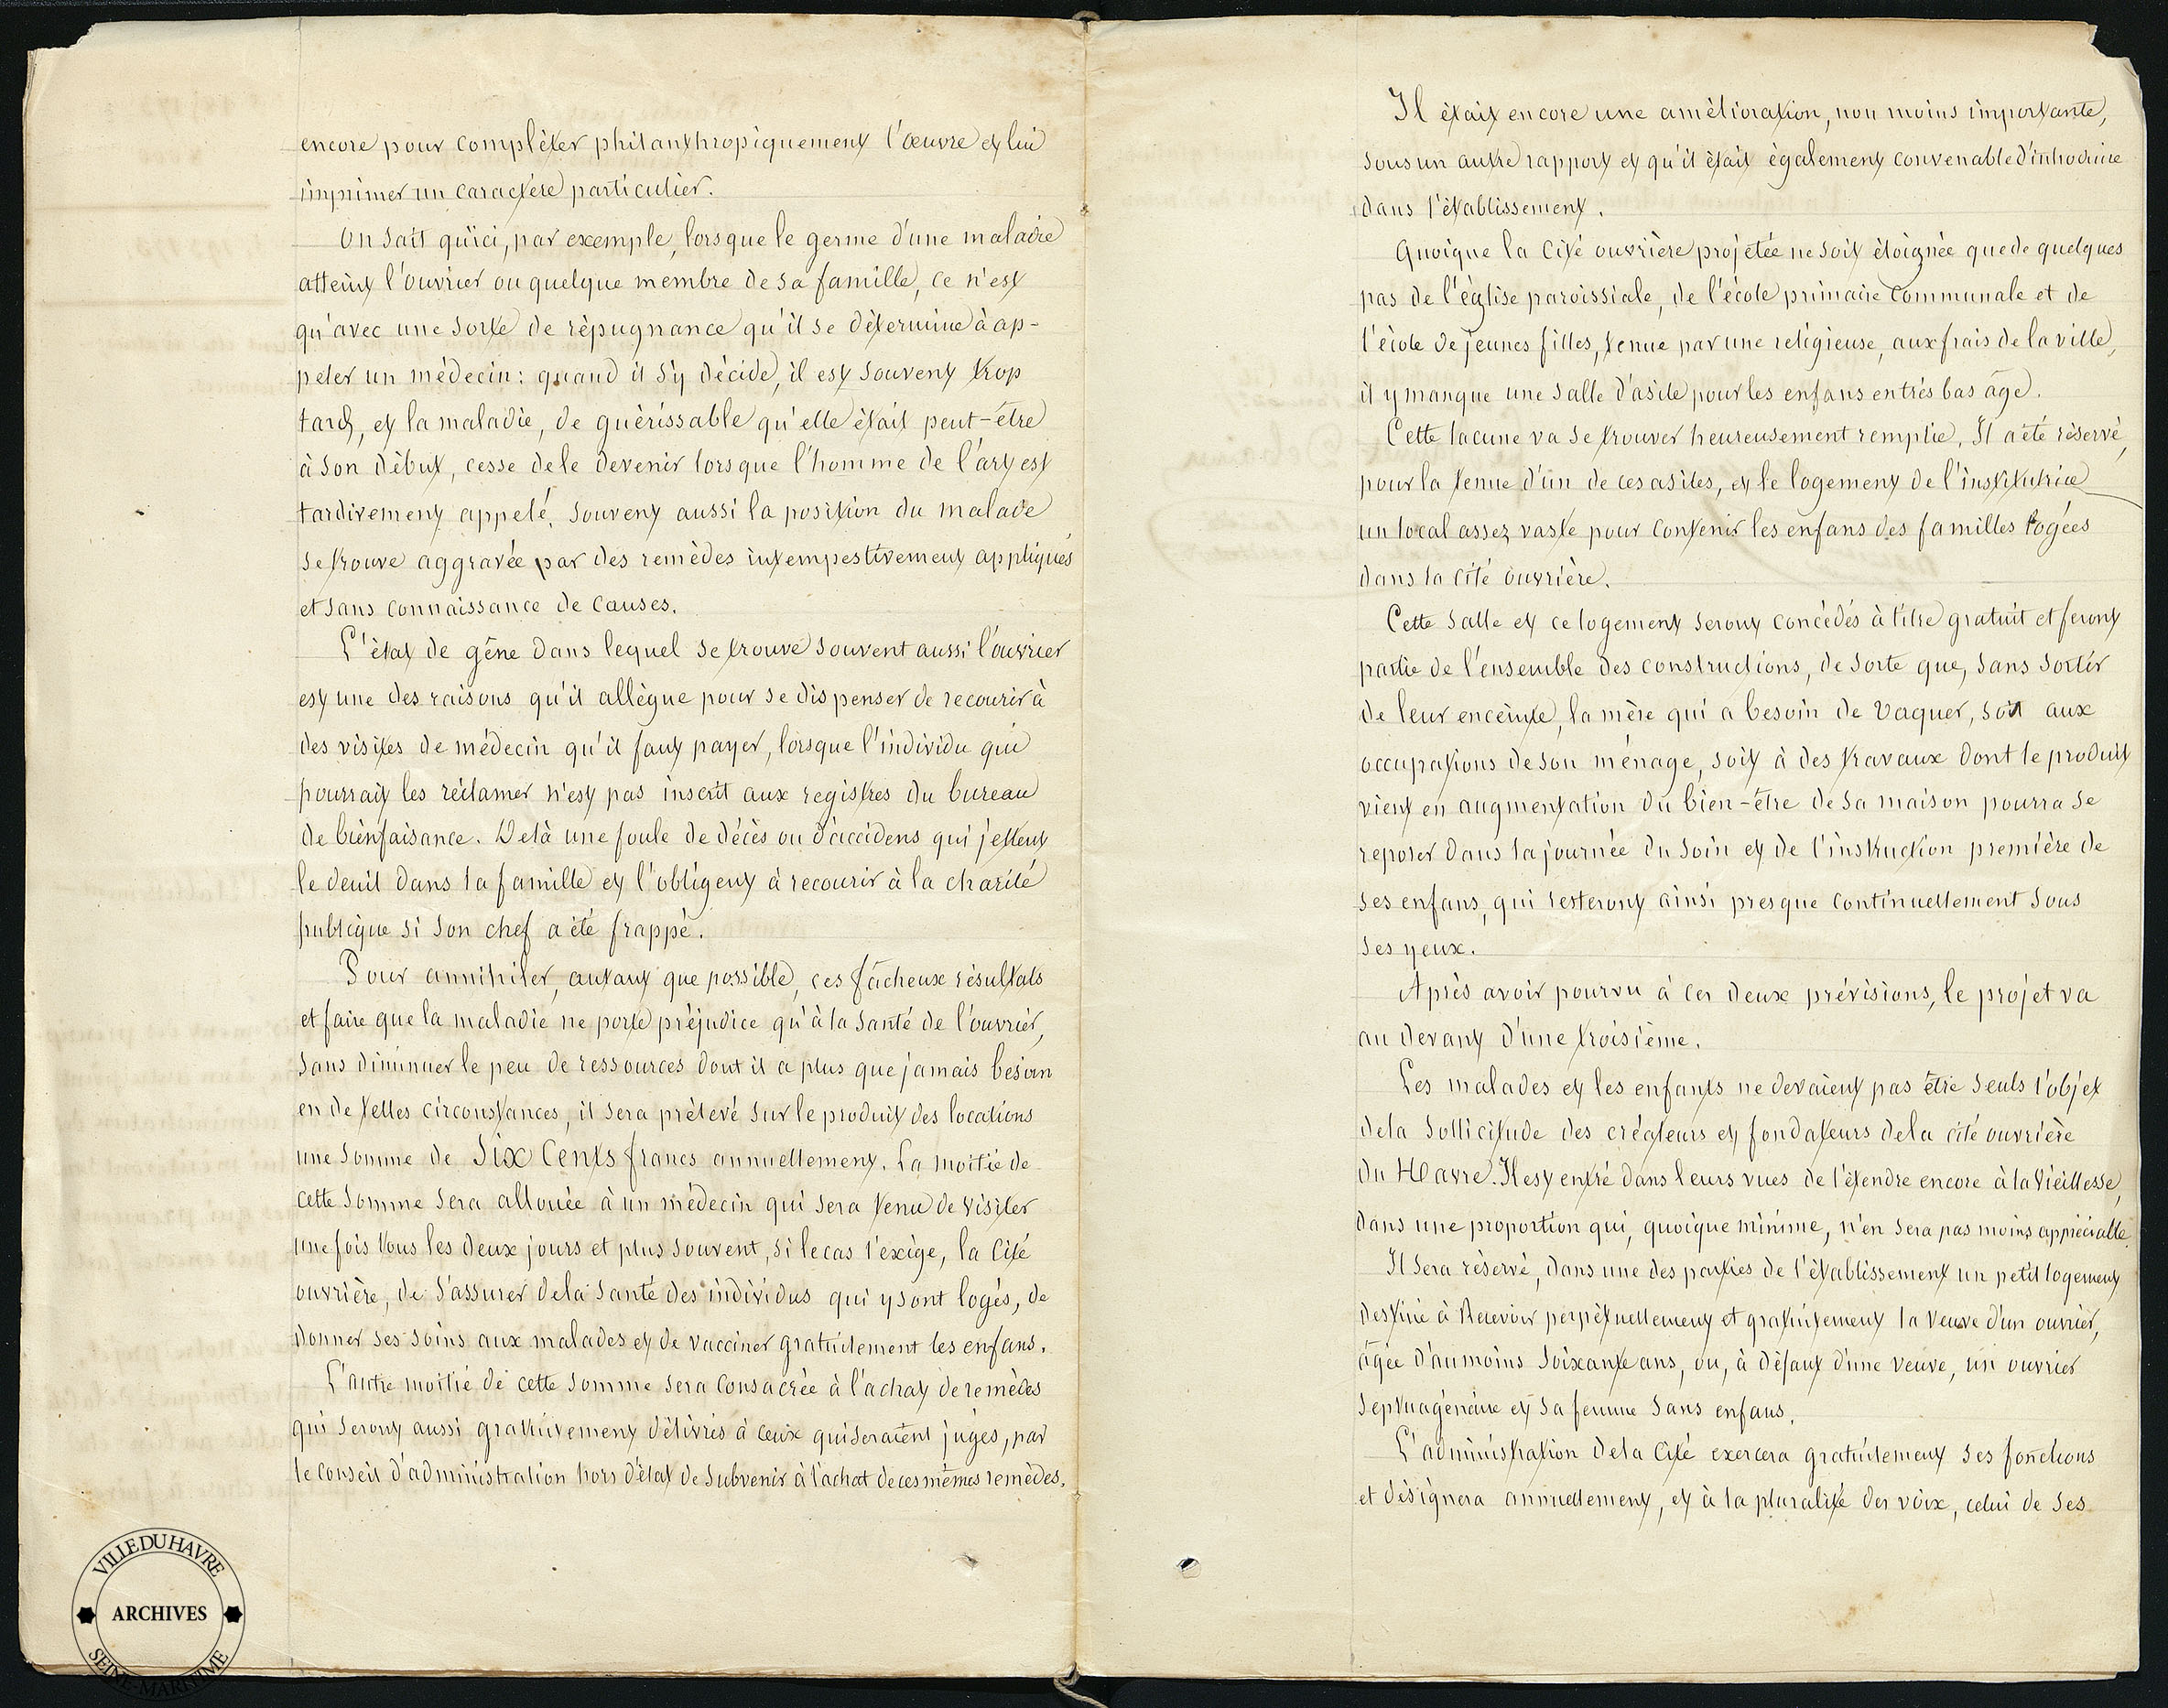 encore pour compléter philanthropiquement l'œuvre et lui
imprimer un caractère particulier.
On sait qu'ici, par exemple, lorsque le germe d'une maladie
atteint l'ouvrier ou quelque membre de sa famille, ce n'est
qu'avec une sorte de répugnance qu'il se détermine à ap-
peler un médecin: quand il s'y décide, il est souvent trop
tard, et la maladie, de guérissable qu'elle était peut-être
à son début, cesse de le devenir lorsque l'homme de l'art est
tardivement appelé. Souvent aussi la position du malade
se trouve aggravée par des remèdes intempestivement appliqués
et sans connaissance de causes.
L'état de gêne dans lequel se trouve souvent aussi l'ouvrier
est une des raisons qu'il allègue pour se dispenser de recourir à
des visites de médecin qu'il faut payer, lorsque l'individu qui
pourrait les réclamer n'est pas inscrit aux registres du bureau
de bienfaisance. De là une foule de décès ou d'accidens qui jettent
le deuil dans la famille et l'obligent à recourir à la charité
publique si son chef a été frappé.
Pour annihiler, autant que possible, ces fâcheux résultats
et faire que la maladie ne porte préjudice qu'à la santé de l'ouvrier,
sans diminuer le peu de ressources dont il a plus que jamais besoin
en de telles circonstances, il sera prélevé sur le produit des locations
une somme de Six Cents francs annuellement. La moitié de
cette somme sera allouée à un médecin qui sera tenu de visiter
une fois tous les deux jours et plus souvent, si le cas l'exige, la Cité
ouvrière, de s'assurer de la santé des individus qui y sont logés, de
donner ses soins aux malades et de vacciner gratuitement les enfans.
L'autre moitié de cette somme sera consacrée à l'achat de remèdes
qui seront aussi gratuitement délivrés à ceux qui seraient jugés, par
le conseil d'administration hors d'état de subvenir à l'achat de ces mêmes remèdes.
VILLE DU HAVRE
ARCHIVES
SEINE-MARITIME
Il était encore une amélioration, non moins importante,
sous un autre rapport et qu'il était également convenable d'introduire
dans l'établissement.
Quoique la Cité ouvrière projetée ne soit éloignée que de quelques
pas de l'église paroissiale, de l'école primaire communale et de
l'école de jeunes filles, tenue par une religieuse, aux frais de la ville,
il y manque une salle d'asile pour les enfans en très bas âge.
Cette lacune va se trouver heureusement remplie. Il a été réservé,
pour la tenue d'un de ces asiles, et le logement de l'institutrice
un local assez vaste pour contenir les enfans des familles logées
dans la cité ouvrière.
Cette salle et ce logement seront concédés à titre gratuit et feront
partie de l'ensemble des constructions, de sorte que, sans sortir
de leur enceinte, la mère qui a besoin de vaquer, soit aux
occupations de son ménage, soit à des travaux dont le produit
vient en augmentation du bien-être de sa maison pourra se
reposer dans la journée du soin et de l'instruction première de
ses enfans, qui resteront ainsi presque continuellement sous
ses yeux.
Après avoir pourvu à ces deux prévisions, le projet va
au devant d'une troisième.
Les malades et les enfants ne devaient pas être seuls l'objet
de la sollicitude des créateurs et fondateurs de la cité ouvrière
du Havre. Il est entré dans leurs vues de l'étendre encore à la vieillesse,
dans une proportion qui, quoique minime, n'en sera pas moins appréciable.
Il sera réservé, dans une des parties de l'établissement un petit logement
destiné à Recevoir perpétuellement et gratuitement la veuve d'un ouvrier,
âgée d'au moins soixante ans, ou, à défaut d'une veuve, un ouvrier
septuagénaire et sa femme sans enfans.
L'administration de la Cité exercera gratuitement ses fonctions
et désignera annuellement, et à la pluralité des voix, celui de ses